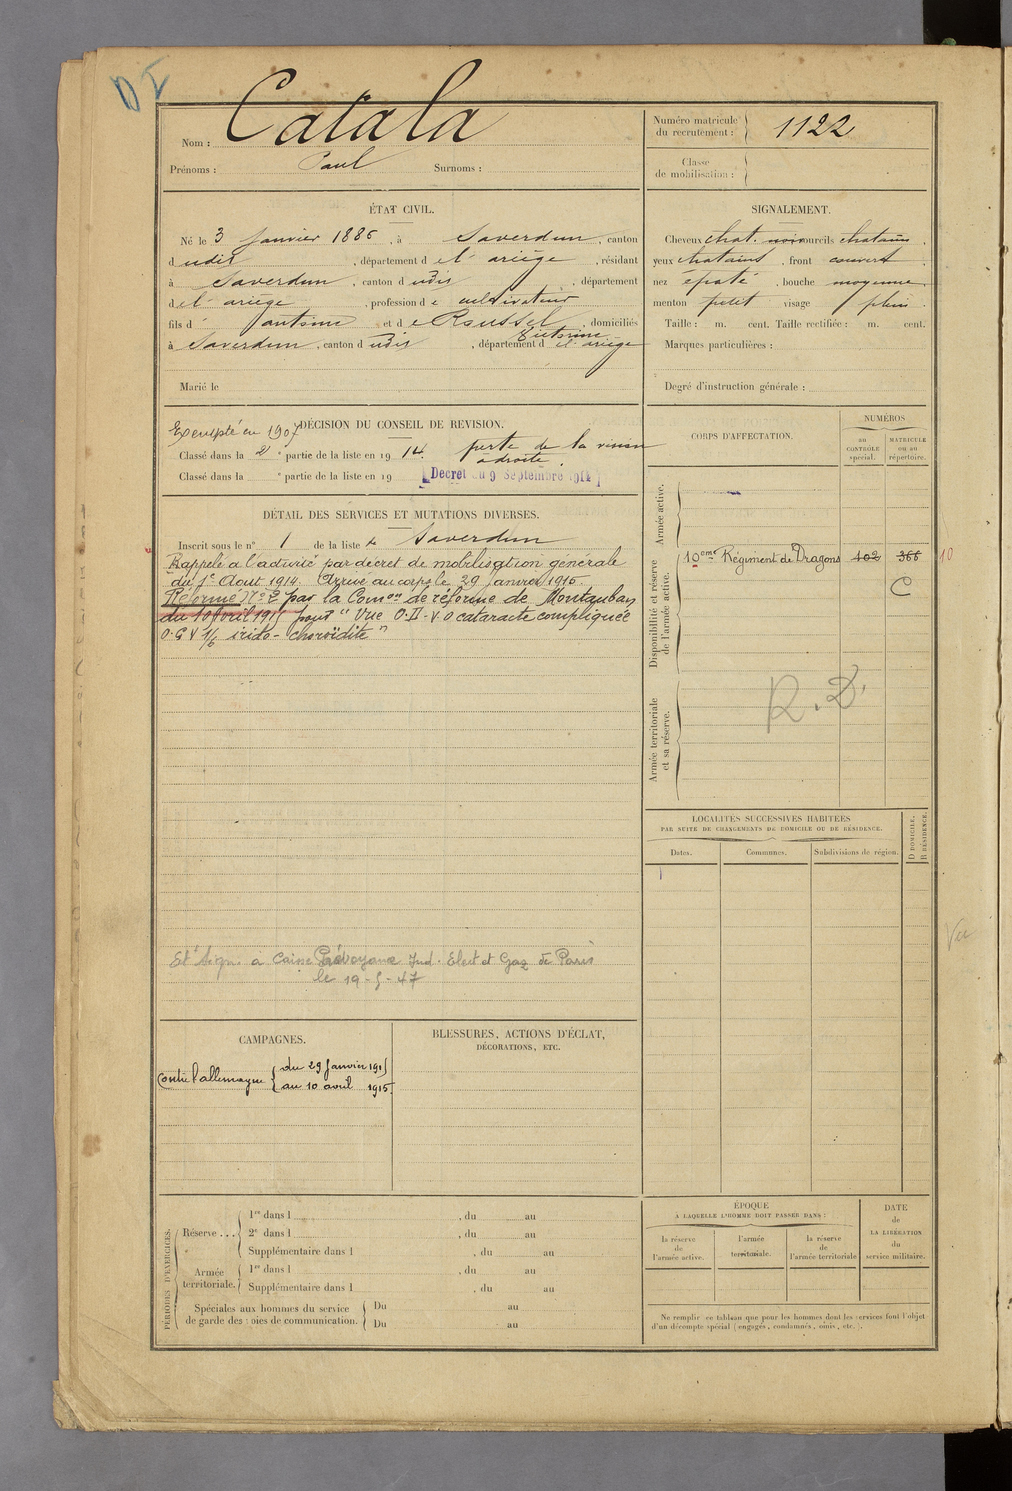 D I
Nom : Catala
Prénoms : Paul Surnoms :
Numéro matricule
du recrutement : 1122
Classe
de mobilisation :
ÉTAT CIVIL.
Né le 3 Janvier 1886, à Saverdun, canton
d udit, département de l'ariège, résidant
à Saverdun, canton d udit, département
de l'ariège, profession de cultivateur
fils d'antoine et de Roussel Victorine, domiciliés
à Saverdun, canton d udit, département de l'ariège
Marié le
SIGNALEMENT.
Cheveux chat. noir sourcils chatains,
yeux chatains, front couvert,
nez épaté, bouche moyenne,
menton petit visage plein
Taille : m. cent. Taille rectifiée : m. cent.
Marques particulières :
Degré d'instruction générale :
DÉCISION DU CONSEIL DE REVISION.
Exempté en 1907
Classé dans la 2e partie de la liste en 1914. perte de la vision
à droite.
Classé dans la e partie de la liste en 19
[Decret du 9 Septembre 1914]
CORPS D'AFFECTATION.
NUMÉROS
au
CONTRÔLE
spécial.
MATRICULE
ou au
répertoire.
Armée active.
Disponibilité et réserve
de l'armée active.
10eme Régiment de Dragons 102 366 10
C
Armée territoriale
et sa réserve.
R.D.
DÉTAIL DES SERVICES ET MUTATIONS DIVERSES.
Inscrit sous le n° 1 de la liste de Saverdun
Rappelé à l'activité par décret de mobilisation générale
du 1er Août 1914. Arrivé au corps le 29 Janvier 1915.
Réformé N° 2 par la Comon de réforme de Montauban
du 10 Avril 1915 pour "Vue O.D. V.O cataracte compliquée
O.G V 1/6 irido-choroïdite"
Et. Sign. a Caisse Prévoyance Ind. Elect et Gaz de Paris
le 19-5-47
LOCALITÉS SUCCESSIVES HABITÉES
PAR SUITE DE CHANGEMENTS DE DOMICILE OU DE RÉSIDENCE.
Dates. Communes. Subdivisions de région.
D DOMICILE.
R RÉSIDENCE.
Vu
CAMPAGNES.
Contre l'allemagne du 29 Janvier 1915
au 10 avril 1915
BLESSURES, ACTIONS D'ÉCLAT,
DÉCORATIONS, ETC.
PÉRIODES D'EXERCICES.
Réserve...
1re dans l , du au
2e dans l , du au
Supplémentaire dans l , du au
Armée
territoriale.
1re dans l , du au
Supplémentaire dans l , du au
Spéciales aux hommes du service
de garde des voies de communication.
Du au
Du au
ÉPOQUE
À LAQUELLE L'HOMME DOIT PASSER DANS :
la réserve
de
l'armée active.
l'armée
territoriale.
la réserve
de
l'armée territoriale
DATE
de
LA LIBÉRATION
du
service militaire.
Ne remplir ce tableau que pour les hommes dont les services font l'objet
d'un décompte spécial (engagés, condamnés, omis, etc.).